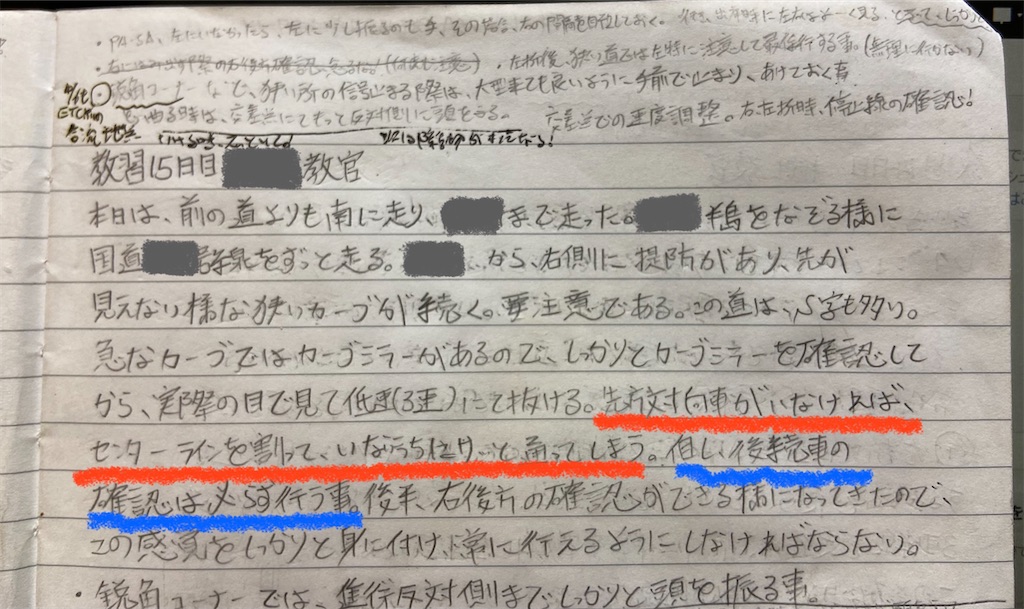 ・PA・SA、左にいなかったら、左に少し振るのも手、その場合、右の障害を目視しておく。
・左折後、狭い道では左特に注意して最徐行する事。(無理に行かない)
鋭角コーナーなどで、狭い所の信号止まる際は、大型来ても良いように手前で止まり、あけておく事
曲る時は、交差点にてもっと反対側に頭をふる。 交差点での速度調整。右左折時、停止線の確認!
ETCの合流地点
教習15日目 教官
本日は、前の道よりも南に走り、まで走った。半島をなぞる様に
国道 号線をずっと走る。 から、右側に堤防があり、先が
見えない様な狭いカーブが続く。要注意である。この道は、S字も多い。
急なカーブではカーブミラーがあるので、しっかりとカーブミラーを確認して
から、実際の目で見て低速(3速)にて抜ける。先方対向車がいなければ、
センターラインを割って、いなうち位グッと曲ってしまう。但し、後続車の
確認は必らず行う事。後半、右後方の確認ができる様になってきたので、
この感覚をしっかりと身に付け、常に行えるようにしなければならない。
・鋭角コーナーでは、進行反対側までしっかりと頭を振る事。